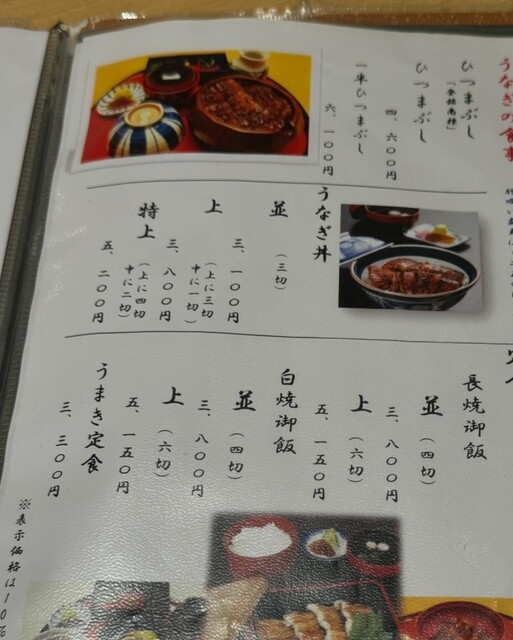 うなぎの食事
ひつまぶし
「登録商標」
ひつまぶし
四、六〇〇円
一半ひつまぶし
六、一〇〇円
うなぎ丼
並
（三切）
三、一〇〇円
上
（上に三切
中に一切）
三、八〇〇円
特上
（上に四切
中に二切）
五、二〇〇円
長焼御飯
並
（四切）
三、八〇〇円
上
（六切）
五、一五〇円
白焼御飯
並
（四切）
三、八〇〇円
上
（六切）
五、一五〇円
うまき定食
三、三〇〇円
※表示価格は10%